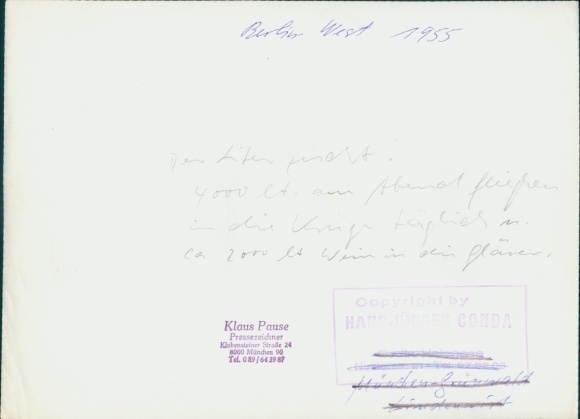 Berlin West 1955
Der Liter zischt!
4000 lt. am Abend fließen
in die Krüge täglich u.
ca 2000 lt Wein in die Gläser.
Klaus Pause
Pressezeichner
Klobensteiner Straße 24
8000 München 90
Tel. 089/643987
Copyright by
HANS-JÜRGEN CONDA
München-Grünwald